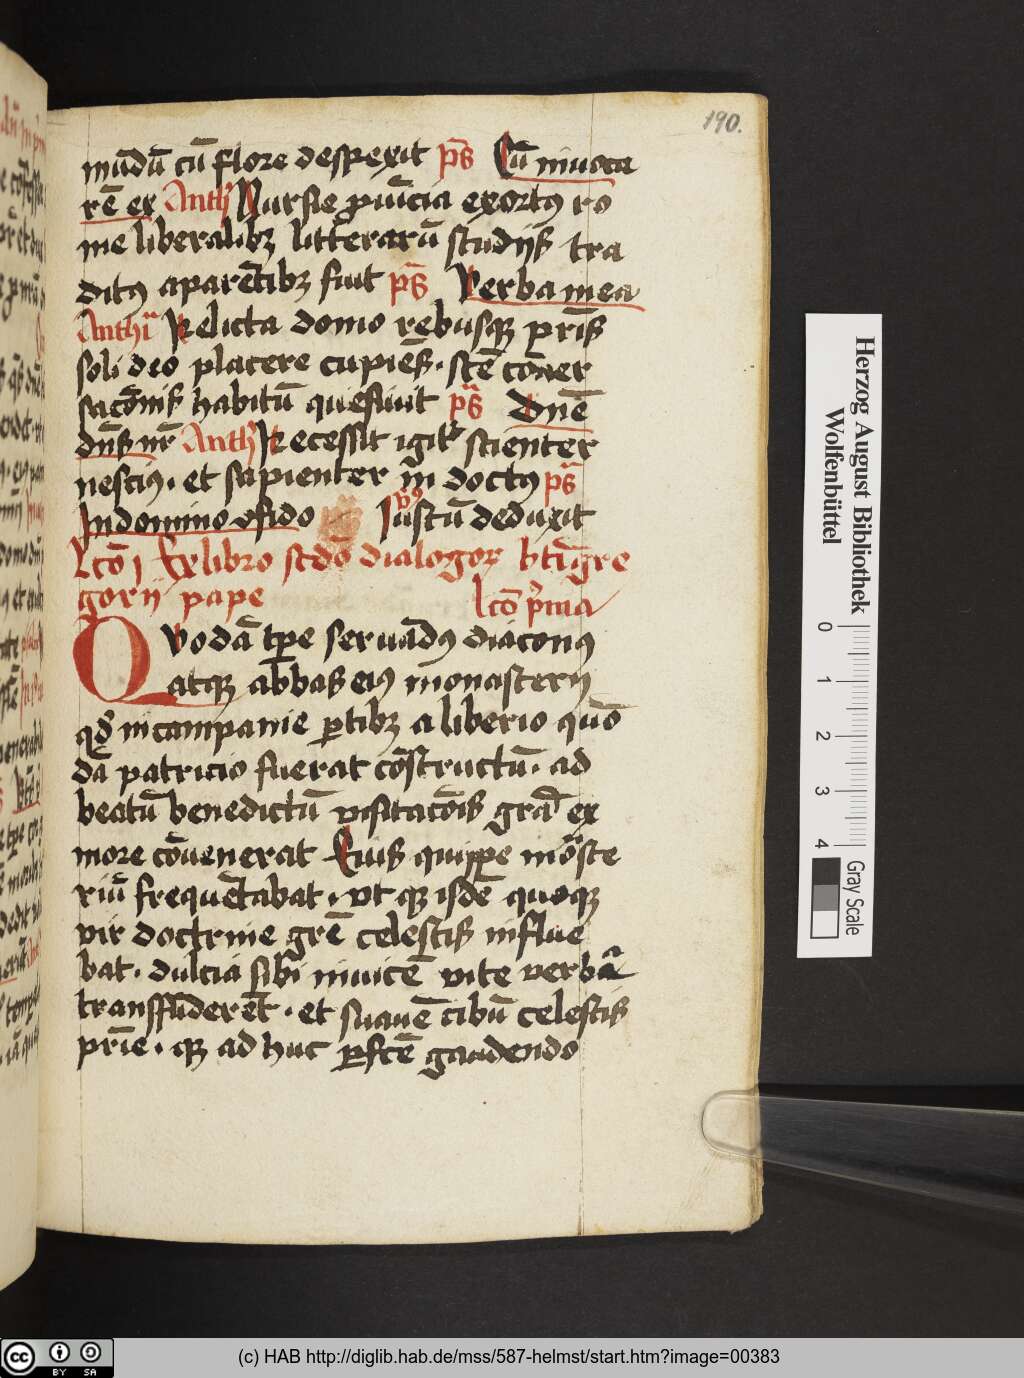 190.
mūdū cū flore despexit ps̄ Cū inuoca
rē ex Anth Nursie ꝓuīcia exortꝰ ro
me liberalibꝫ litterarū studijs tra
ditꝰ aparētibꝫ fuit ps̄ Verba mea
Anth Relicta domo rebusqꝫ pr̄is
soli deo placere cupiēs · scē cōuer
sacōnis habitū quesiuit ps̄ Dn̄e
dn̄s nr̄ Anth Recessit igit scienter
nesciꝰ · et sapienter in doctꝰ ps̄
In domino ꝯfido vꝰ Iustū deduxit
Lcō j Ex libro scdō dialogoꝝ bti gre
gorij pape lcō prīma
Quodā tpe seruādꝰ diaconꝰ
atqꝫ abbas eiꝰ monasterij
qd̄ in campanie ꝑtibꝫ a liberio quō
dā patricio fuerat cōstructū · ad
beatū benedictū visitacōis grā ex
more cōuenerat Eius quippe mōste
riū frequētabat · vt qꝫ isdē quoqꝫ
vir doctrine grē celestis influe
bat · dulcia sibi inuicē vite verba
transfūderēt · et suauē cibū celestis
pr̄ie · qꝫ ad huc ꝑfcē gaudendo
Herzog August Bibliothek
Wolfenbüttel
0 1 2 3 4
Gray Scale
cc BY SA
(c) HAB http://diglib.hab.de/mss/587-helmst/start.htm?image=00383